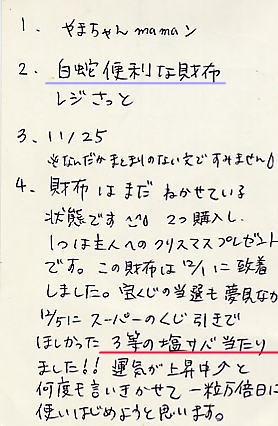 1. やまちゃんmamaン
2. 白蛇便利な財布
レジさっと
3. 11/25
※なんだかまとまりのない文ですみません
4. 財布はまだねかせている
状態です 2つ購入し、
1つは主人へのクリスマスプレゼント
です。この財布は12/1に到着
しました。宝くじの当選も夢見なが
12/5にスーパーのくじ引きで
ほしかった3等の塩サバ当たり
ました!! 運気が上昇中と
何度も言いきかせて一粒万倍日に
使いはじめようと思います。